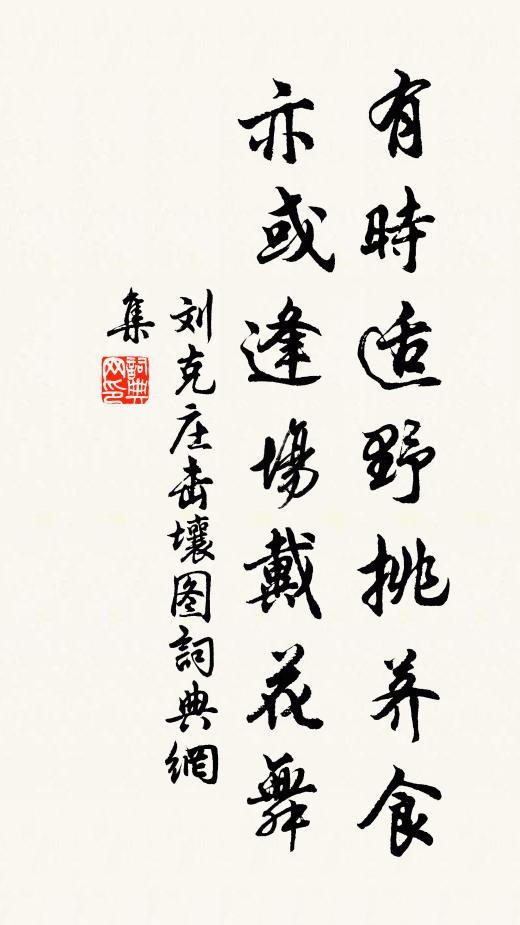 有時适野挑荠食
亦或逢場戴花舞
刘克庄击壤图詞典網
集
詞典
网印